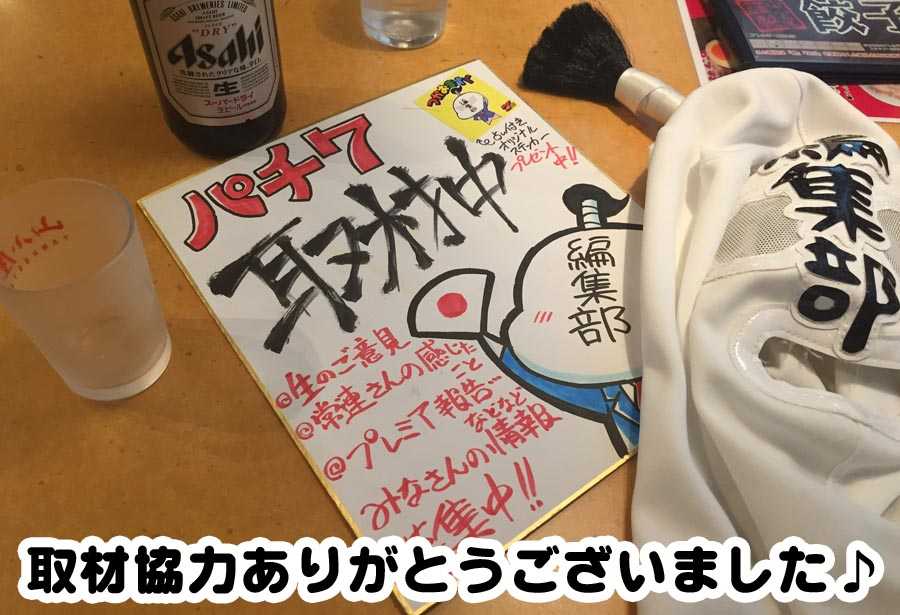 ASAHI BREWERIES LIMITED
"DRY"
Asahi
生
スーパードライ
生ビール
パチ7
取材中
てぬぐい付き
オリジナル
ステッカー
プレゼント
中!!
編集部
@生のご意見
@常連さんの感じた
こと
@プレミア報告…
などなど
みなさんの情報
集中!!
編集部
餃子
取材協力ありがとうございました♪